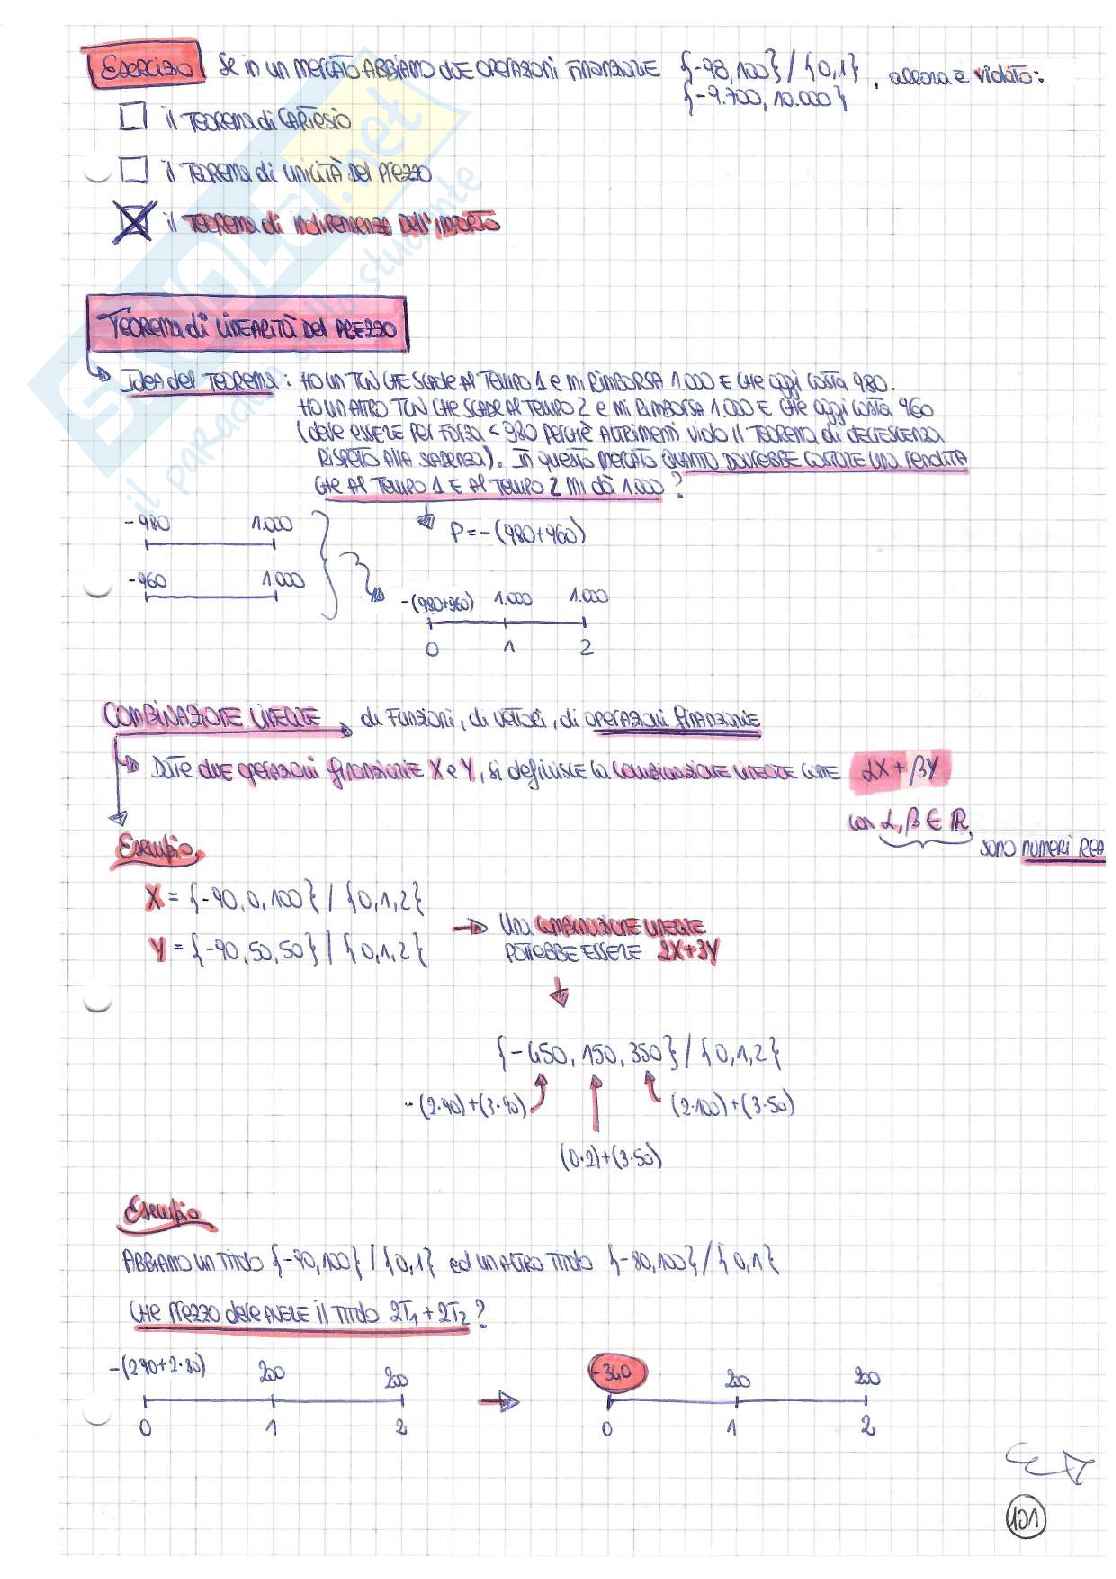 Esercizio Se in un mercato abbiamo due operazioni finanziarie {-98, 100} / {0,1}, allora è violato:
{-9.700, 10.000}
il teorema di Cartesio
il teorema di unicità del prezzo
il teorema di indipendenza dall'importo
Teorema di linearità del prezzo
Idea del teorema: ho un TCN che scade al tempo 1 e mi rimborsa 1.000 e che oggi costa 980.
Ho un altro TCN che scade al tempo 2 e mi rimborsa 1.000 e che oggi costa 960
(deve essere per forza < 980 perché altrimenti violo il teorema di decrescenza
rispetto alla scadenza). In questo mercato quanto dovrebbe costare una rendita
che al tempo 1 e al tempo 2 mi dà 1.000?
-980 1.000
P = -(980+960)
-960 1.000
-(980+960) 1.000 1.000
0 1 2
Combinazione lineare di funzioni, di vettori, di operazioni finanziarie
Date due operazioni finanziarie X e Y, si definisce la combinazione lineare come αX + βY
con α, β ∈ R, sono numeri REA
Esempio
X = {-90, 0, 100} / {0,1,2}
Una combinazione lineare
Y = {-90, 50, 50} / {0,1,2}
potrebbe essere 2X+3Y
{-450, 150, 350} / {0,1,2}
-(2·90)+(3·90) (2·100)+(3·50)
(0·2)+(3·50)
Esempio
Abbiamo un titolo {-90, 100} / {0,1} ed un altro titolo {-80, 100} / {0,1}
Che prezzo deve avere il titolo 2T1 + 2T2?
-(290+2·80) 200 200 -340 200 200
0 1 2 0 1 2
101
SKUOLA.net
il paradiso dello studente